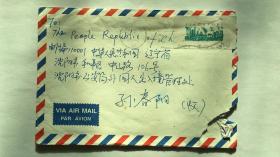 To:
The People Republic of Ch
邮编110001 中华人民共和国 辽宁省
沈阳市 和平区 中山路 106号
沈阳市公安局外国人出入境管理处
孙春阳 (收)
VIA AIR MAIL
PAR AVION